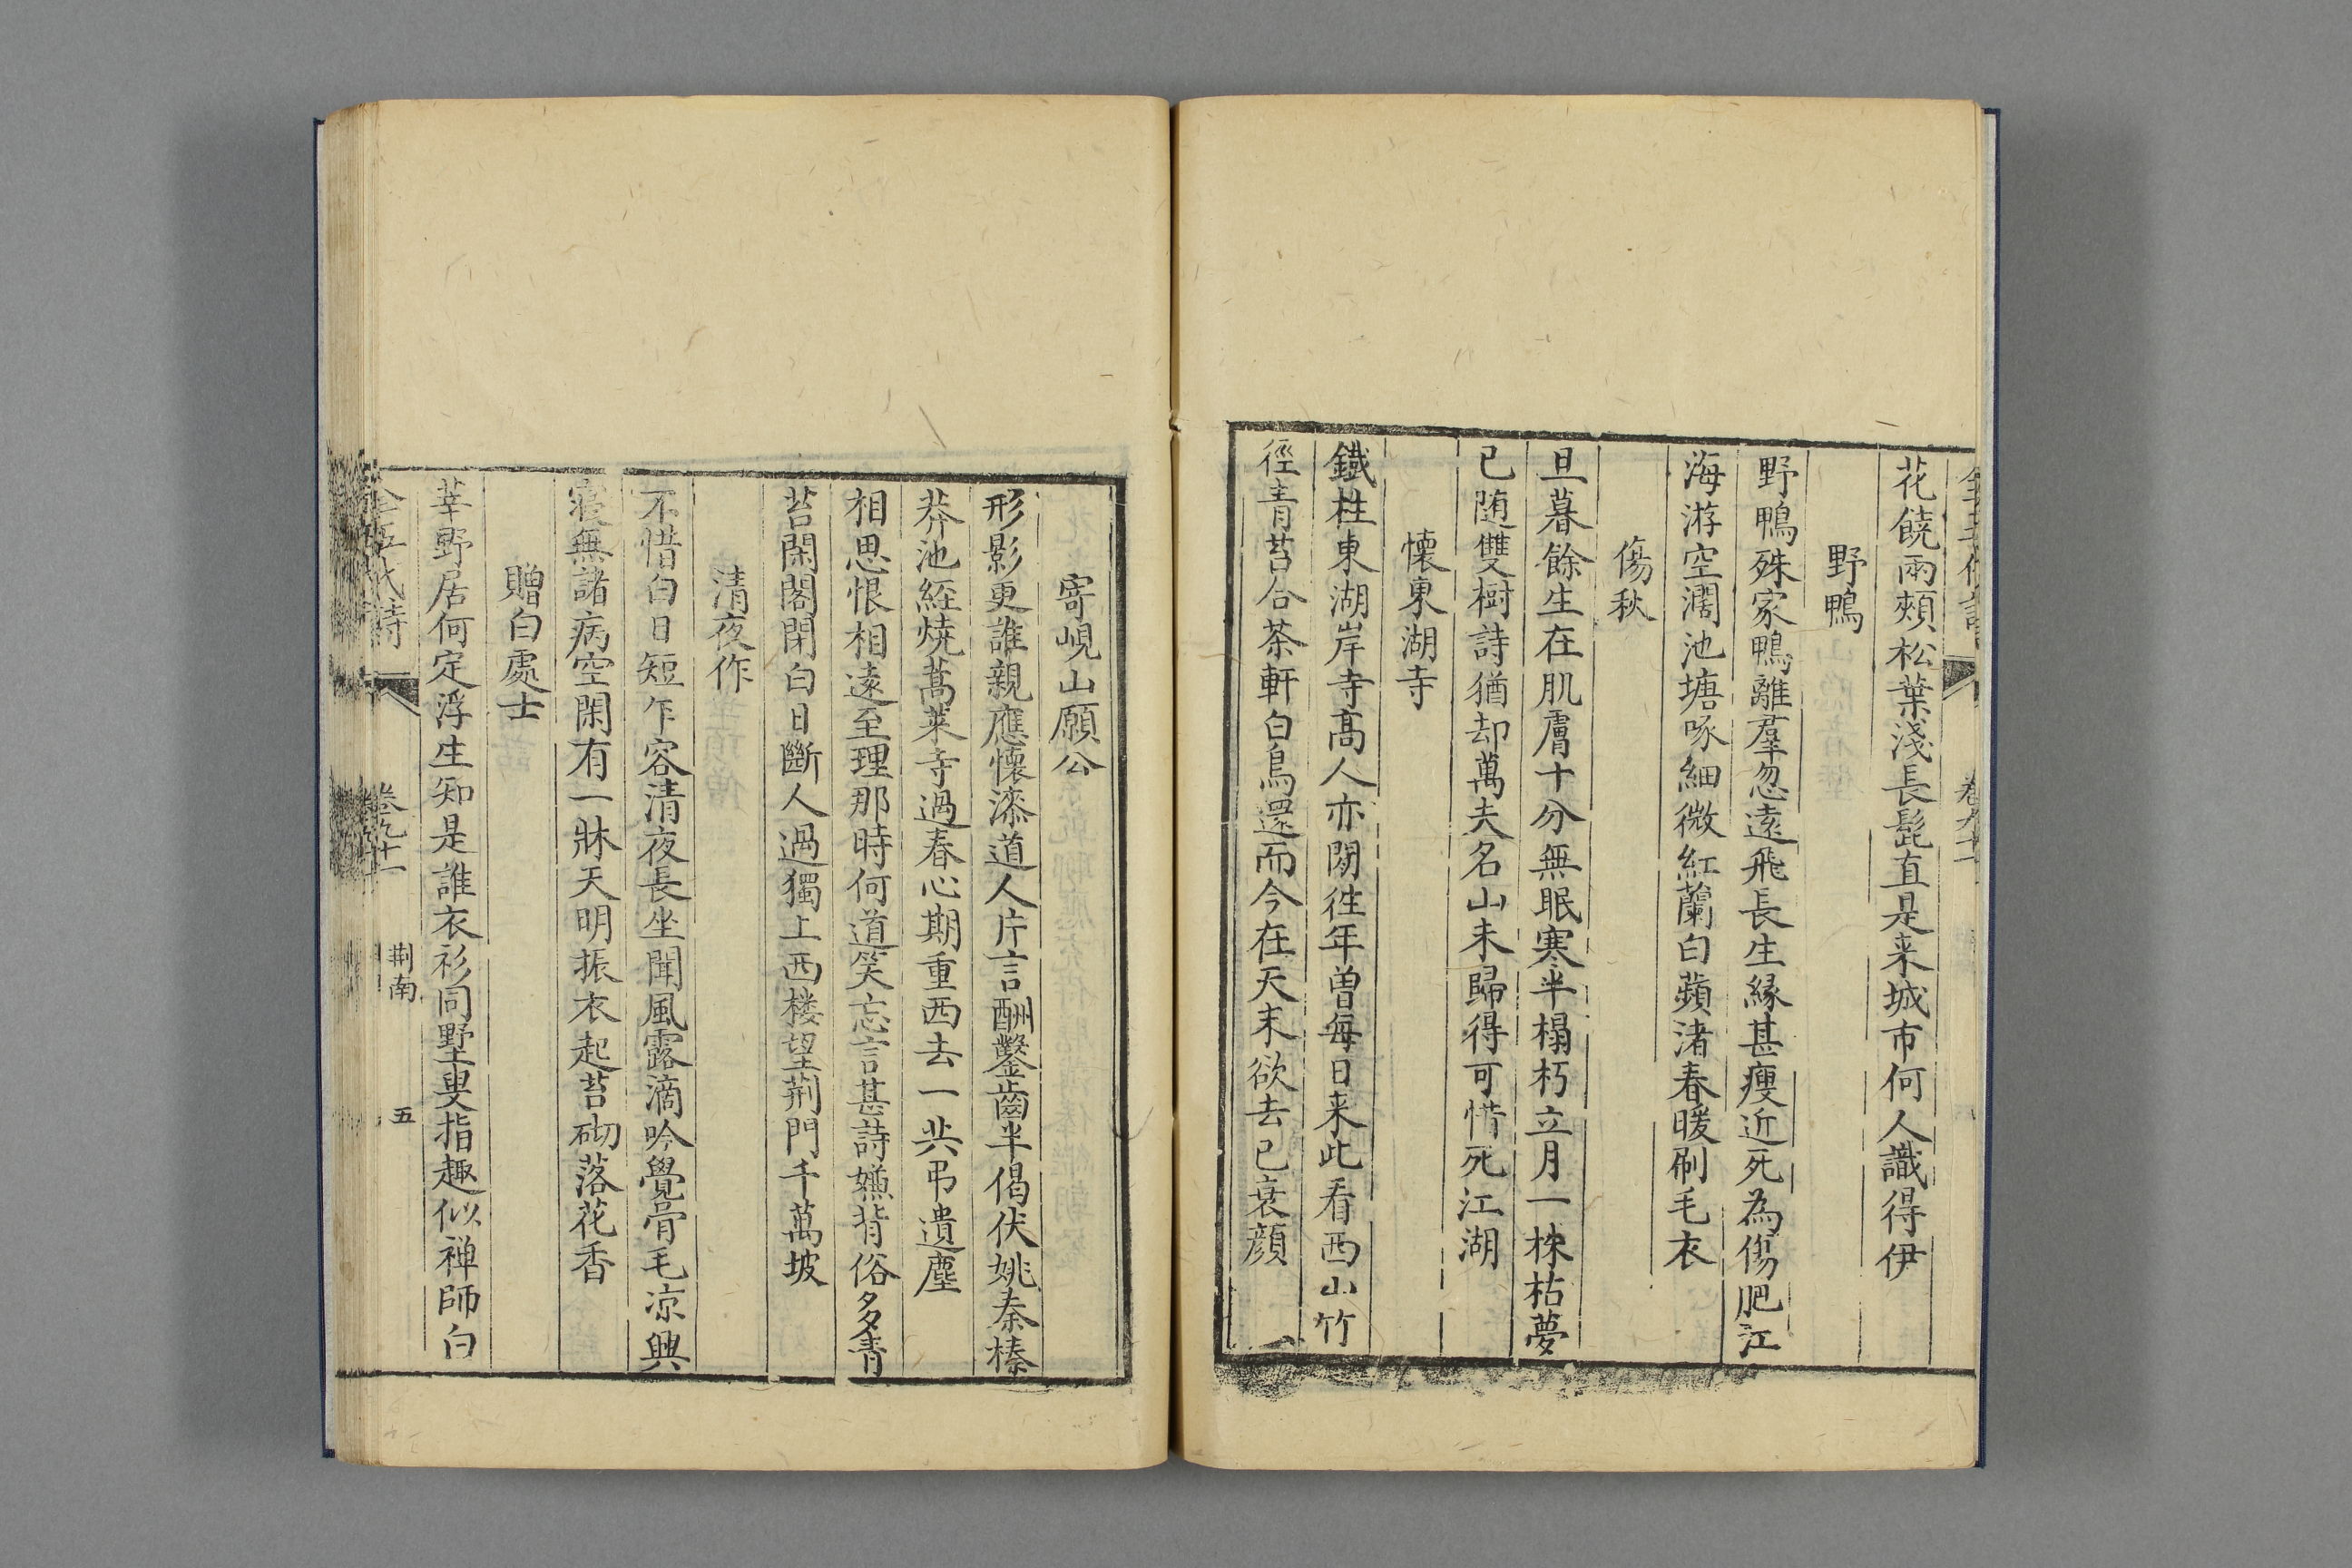 全五代詩 卷九十一
花饒雨頰松葉淺長髭直是来城市何人識得伊
野鴨
野鴨殊家鴨離羣忽遠飛長生緣甚瘦近死為傷肥江
海游空濶池塘啄細微紅蘭白蘋渚春暖刷毛衣
傷秋
旦暮餘生在肌膚十分無眠寒半榻朽立月一株枯夢
已随雙樹詩猶却萬夫名山未歸得可惜死江湖
懷東湖寺
鐵柱東湖岸寺髙人亦閒徃年曽每日来此看西山竹
徑青苔合茶軒白鳥還而今在天末欲去已衰顔
寄峴山願公
形影更誰親應懷漆道人片言酬鑿齒半偈伏姚秦榛
莽池經燒蒿萊寺過春心期重西去一共弔遺塵
相思恨相遠至理那時何道笑忘言甚詩嫌背俗多青
苔閑閣閉白日斷人過獨上西楼望荆門千萬坡
清夜作
不惜白日短乍容清夜長坐聞風露滴吟覺骨毛凉興
寢無諸病空閑有一牀天明振衣起苔砌落花香
贈白處士
莘野居何定浮生知是誰衣衫同墅叟指趣似禅師白
全五代詩 卷九十一 荆南 五